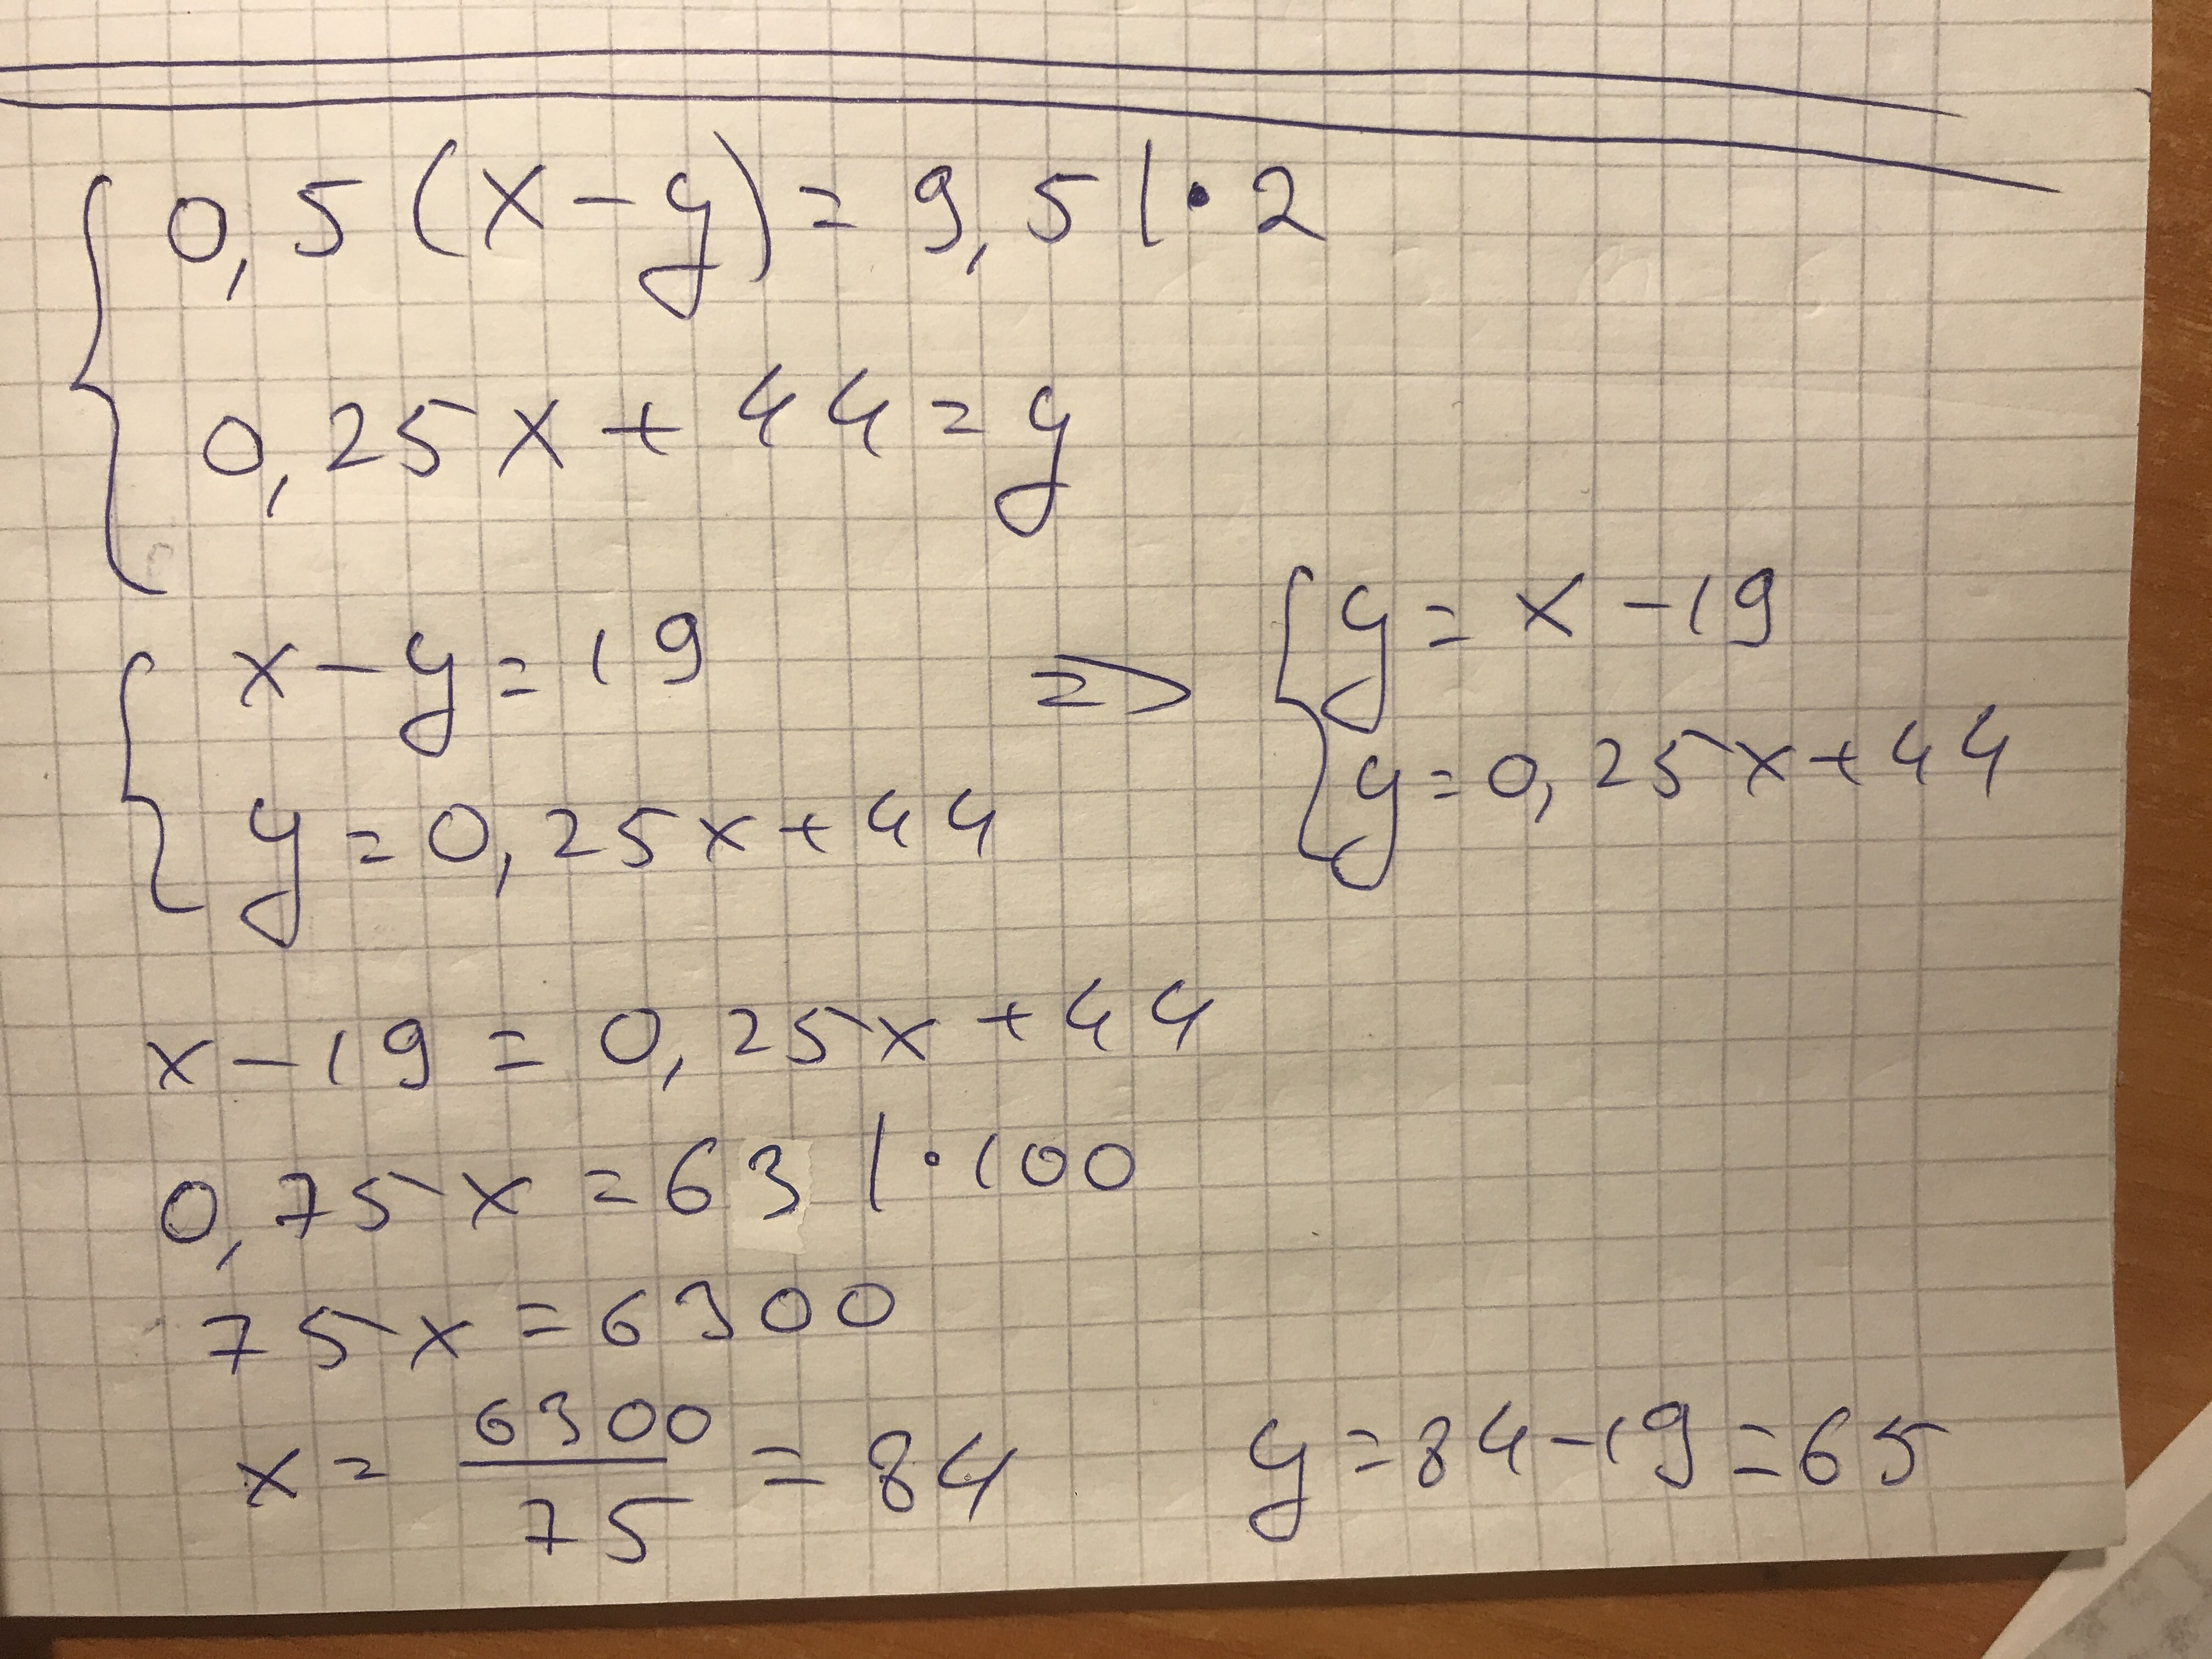 0,5(x-y)=9,5 |·2
0,25x+44=y
x-y=19 => y=x-19
y=0,25x+44 y=0,25x+44
x-19=0,25x+44
0,75x=63 |·100
75x=6300
x=6300/75=84 y=84-19=65